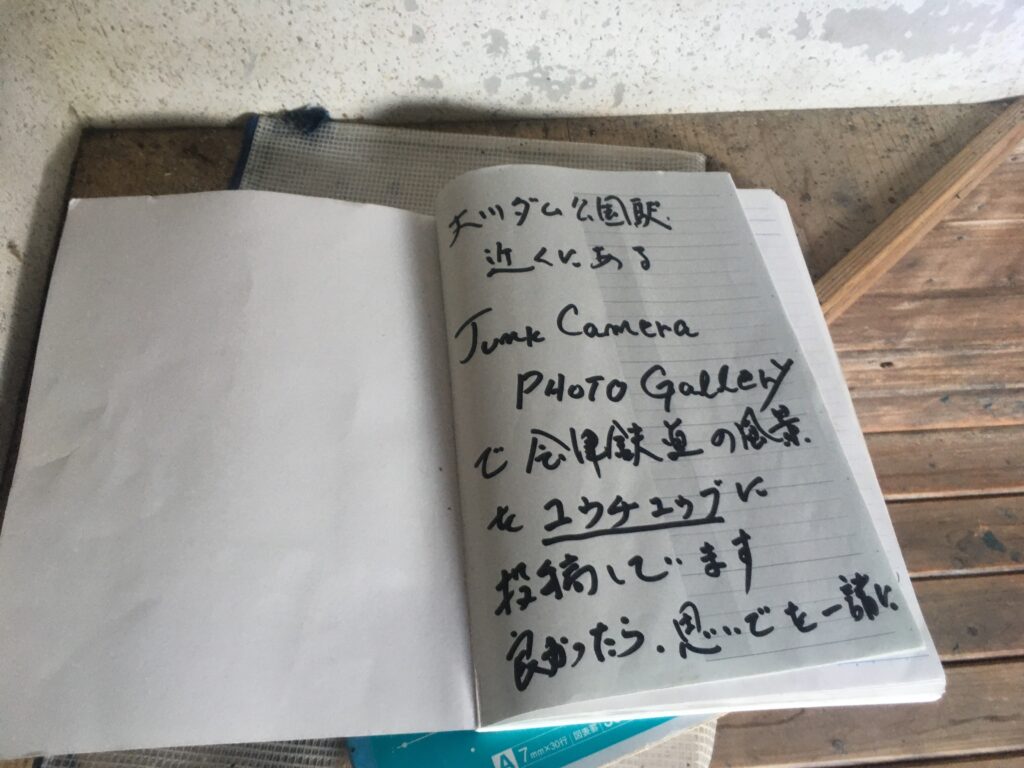 大川ダム公園駅
近くにある
Junk Camera
PHOTO Gallery
で会津鉄道の風景
を ユウチュウブに
投稿しています
良かったら、思いでを一諸に
A 7mm×30行 図書罫